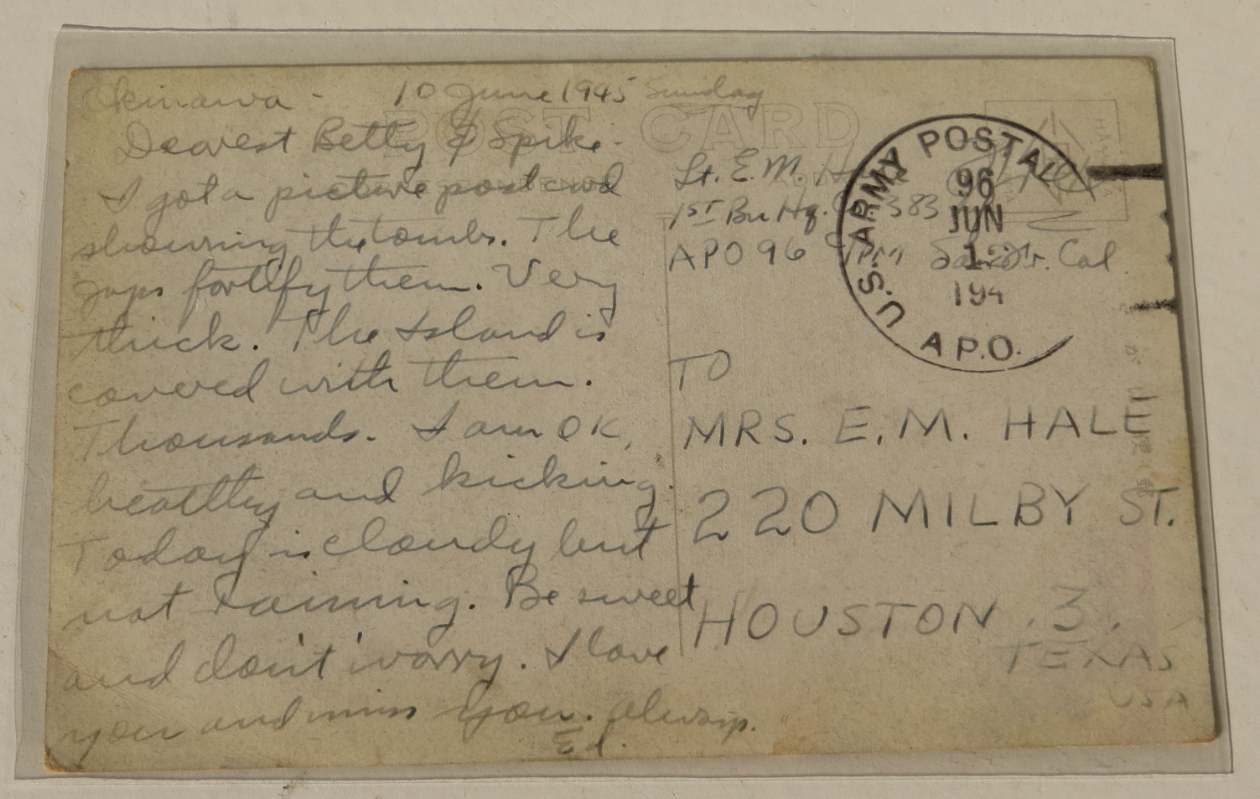 Okinawa - 10 June 1945 Sunday
Dearest Betty & Spike -
I got a picture post card
showing the tombs. The
Japs fortify them. Very
thick. The Island is
covered with them.
Thousands. I am OK,
healthy and kicking.
Today is cloudy but
not raining. Be sweet
and don't worry. I love
you and miss you. Always.
Ed.
POST CARD
Lt. E.M.
1st Bn Hq. 383
APO 96 Cal.
U.S. ARMY POSTAL
96
JUN
194
A.P.O.
TO
MRS. E.M. HALE
220 MILBY ST.
HOUSTON . 3 .
TEXAS
USA